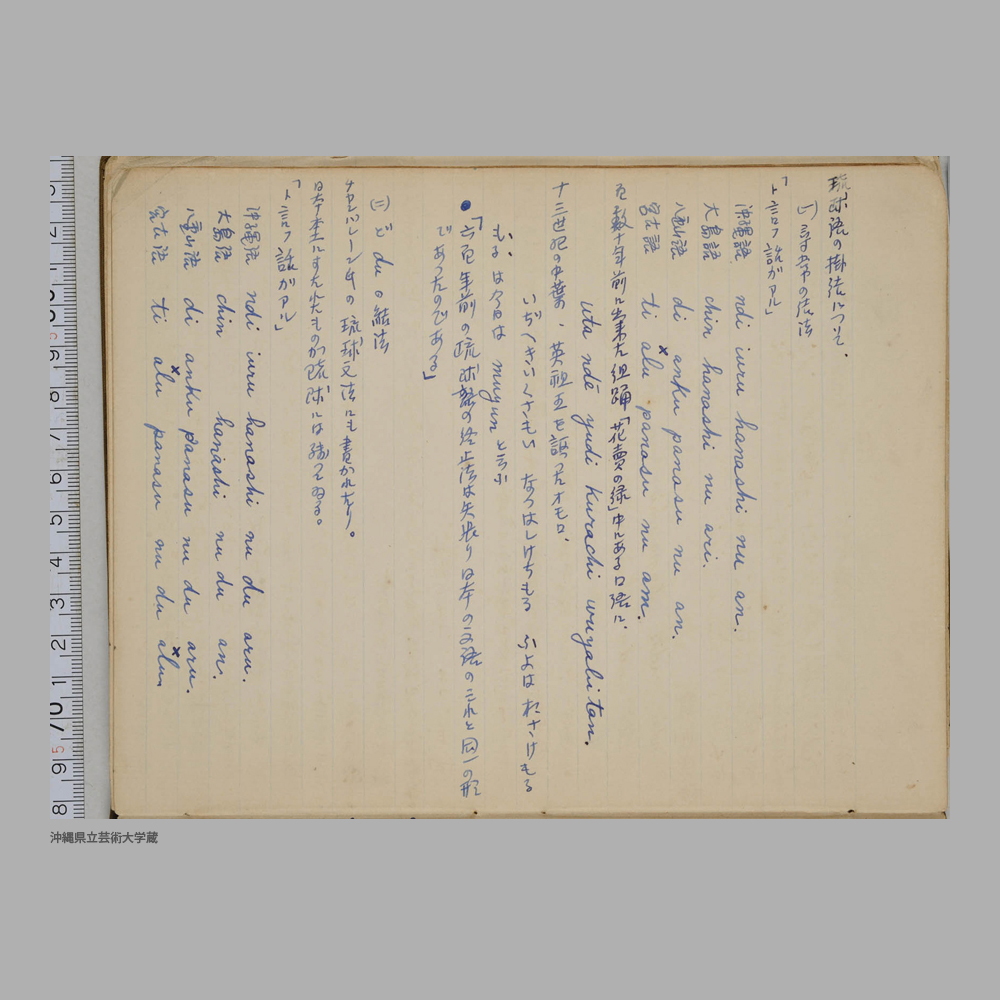 琉球語の掛結について、
(一) 尋常の結法
「ト言フ話ガアル」
沖縄語 ndi iuru hanashi nu an.
大島語 chin hanashi nu ari.
八重山語 di anku panasu nu an.
宮古語 ti alu panasu nu am.
百数十年前に出来た組踊「花売の縁」中にある口語に、
uta ndē yudi kurachi wuyabitan.
十三世紀の中葉、英祖王を謡ったオモロ、
いぢへきいくさもい なつはしけちもる ふよはおさけもる
もる は今日は muyun と云ふ
「六百年前の琉球語の終止法は矢張り日本の文語のこれと同一の形
であったのである」
(二) ど du の結法
チェンバレーン氏の琉球文法にも書かれたり。
日本本土にすたれたものが琉球には残って居る。
「ト言フ話ガアル」
沖縄語 ndi iuru hanashi nu du aru.
大島語 chin hanashi nu du an.
八重山語 di anku panasu nu du aru.
宮古語 ti alu panasu nu du alu.
8 9 10 1 2 3 4 5 6 7 8 9
沖縄県立芸術大学蔵